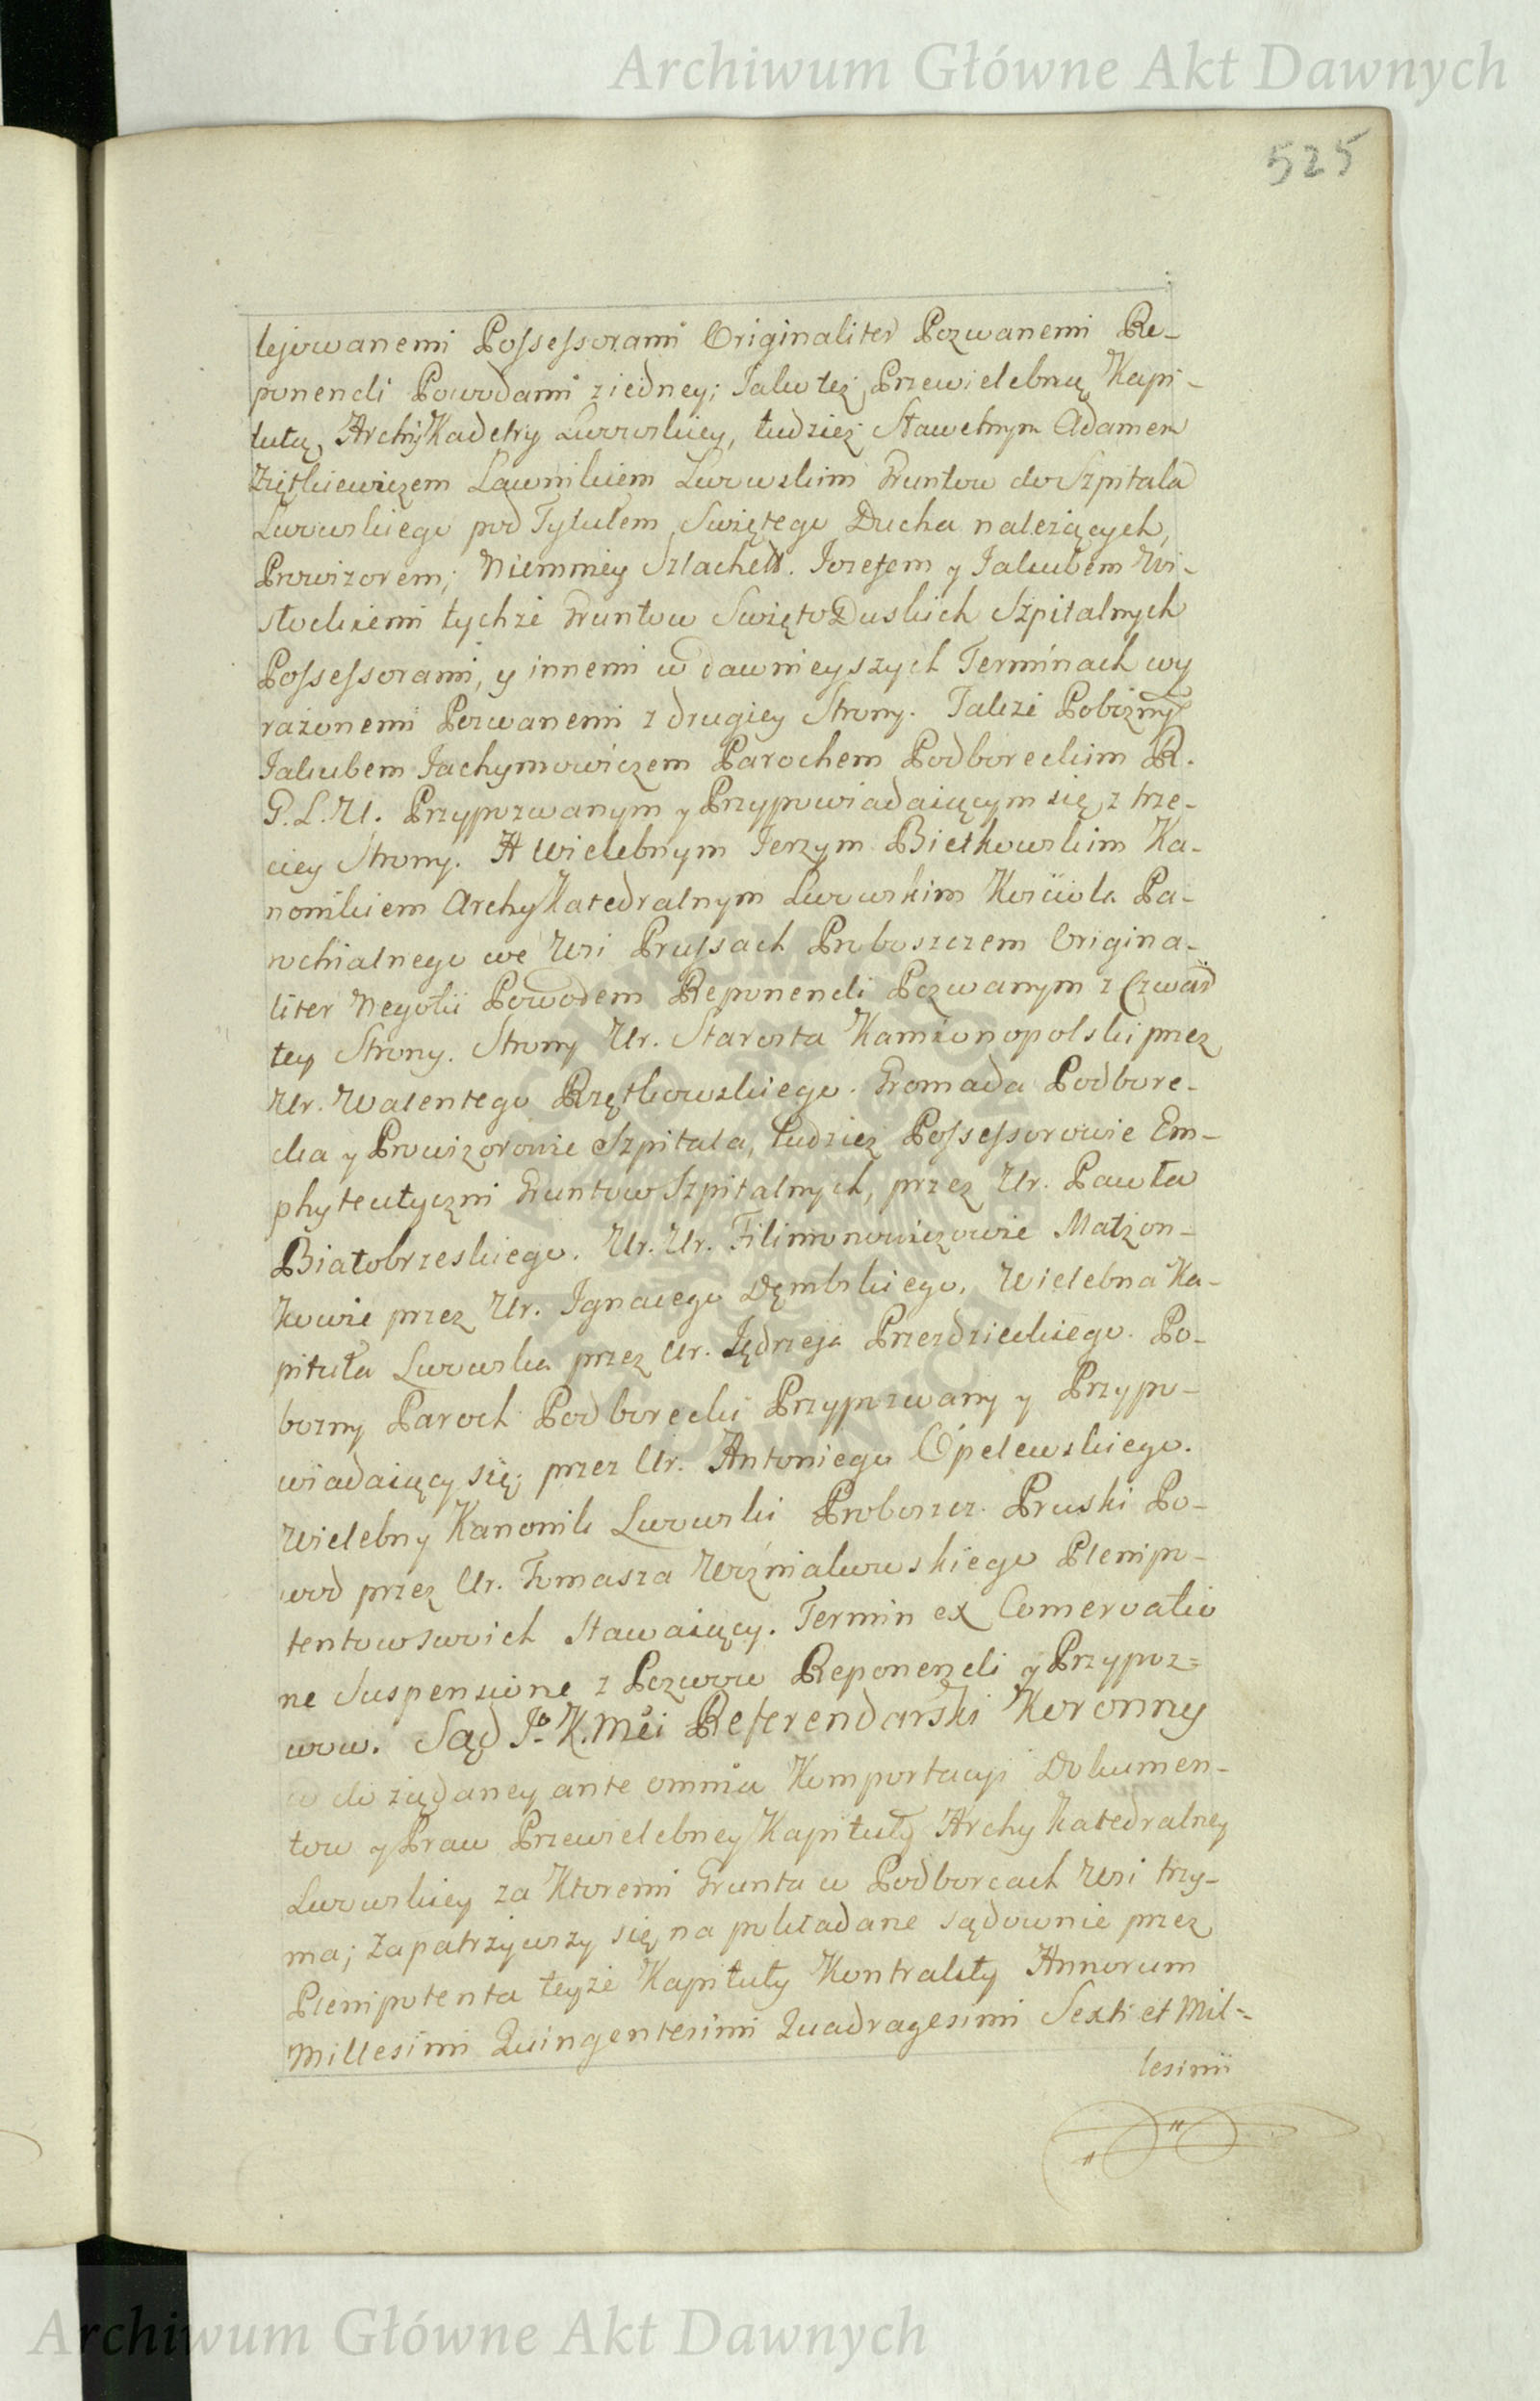 Archiwum Główne Akt Dawnych
525
lejowanemi Possessorami Originaliter Pozwanemi Re-
ponendi Powodami z iedney; Jako też Przewielebną Kapi-
tułą Archy Kadetry Lwowskiey, tudzież Sławetnym Adamem
Ziętkiewiczem Ławnikiem Lwowskim Gruntow do Szpitala
Lwowskiego pod Tytułem Swiętego Ducha należących,
Prowizorem; Niemniey Szlachett. Jozefem y Jakubem Wi-
słockiemi tychże Gruntow Swięto Duskich Szpitalnych
Possessorami, y innemi w dawnieyszych Terminach wy
rażonemi Pozwanemi z drugiey Strony. Takze Pobożnym
Jakubem Jachymowiczem Parochem Podboreckim R.
G. L. U. Przypozwanym y Przypowiadaiącym się z trze-
ciey Strony. A Wielebnym Jerzym Bietkowskim Ka-
nonikiem Archy Katedralnym Lwowskim Kościoła Pa-
rochialnego we Wsi Prussach Proboszczem Origina-
liter Negotii Powodem Reponendi Pozwanym z Czwar
tey Strony. Strony Ur. Starosta Kamionopolski przez
Ur. Walentego Rzętkowskiego. Gromada Podbore-
cka y Prowizorowie Szpitala, tudzież Possessorowie Em-
phyteutyczni Gruntow Szpitalnych, przez Ur. Pawła
Białobrzeskiego. Ur. Ur. Filimonowiczowie Małżon-
kowie przez Ur. Ignacego Dęmbskiego. Wielebna Ka-
pituła Lwowska przez Ur. Jędrzeja Przezdzieckiego. Po-
bozny Paroch Podborecki Przypozwany y Przypo-
wiadaiący się; przez Ur. Antoniego Opelewskiego.
Wielebny Kanonik Lwowski Proboszcz Pruski Po-
wod przez Ur. Tomasza Woźniakowskiego Plenipo-
tentow swoich stawaiący. Termin ex Conservatio
ne Suspensione z Pozwow Reponendi y Przypoz=
wow. Sąd Jo. K. Mci Referendarski Koronny
w do żądaney ante omnia Komportacyi Dokumen-
tow y Praw Przewielebney Kapituły Archy Katedralney
Lwowskiey za Ktoremi Grunta w Podborcach Wsi trzy-
ma; Zapatrzywszy się na pokładane sądownie przez
Plenipotenta teyże Kapituły Kontrakty Annorum
Millesimi Quingentesimi Quadragesimi Sexti et Mil-
lesimi
Archiwum Główne Akt Dawnych